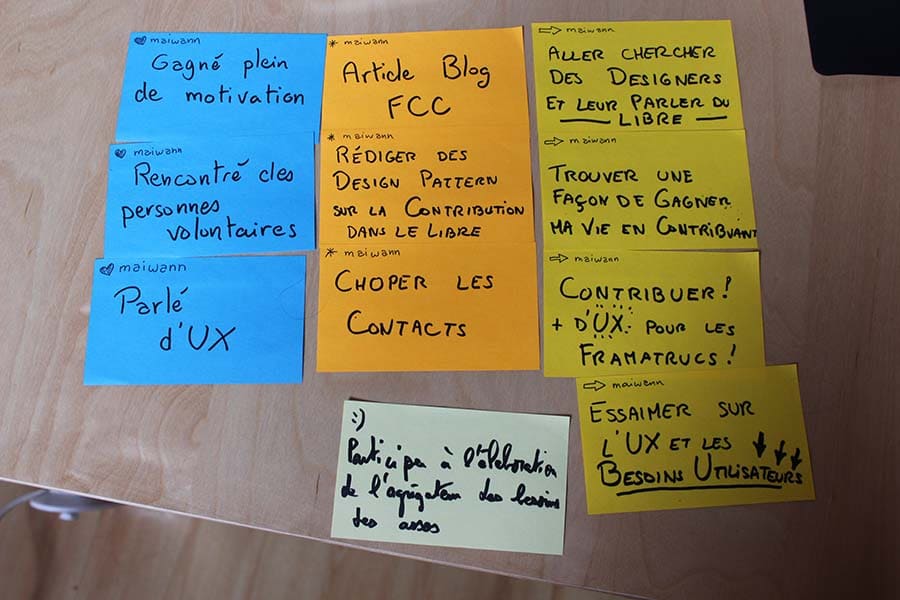 maiwann
Gagné plein
de motivation
maiwann
Rencontré des
personnes
volontaires
maiwann
Parlé
d'UX
maiwann
Article Blog
FCC
maiwann
RÉDIGER DES
DESIGN PATTERN
SUR LA CONTRIBUTION
DANS LE LIBRE
maiwann
CHOPER LES
CONTACTS
maiwann
ALLER CHERCHER
DES DESIGNERS
ET LEUR PARLER DU
LIBRE
maiwann
TROUVER UNE
FAÇON DE GAGNER
MA VIE EN CONTRIBUANT
maiwann
CONTRIBUER!
+ D'UX POUR LES
FRAMATRUCS!
maiwann
ESSAIMER SUR
L'UX ET LES
BESOINS UTILISATEURS
:)
Participer à l'élaboration
de l'agrégateur des besoins
des assos